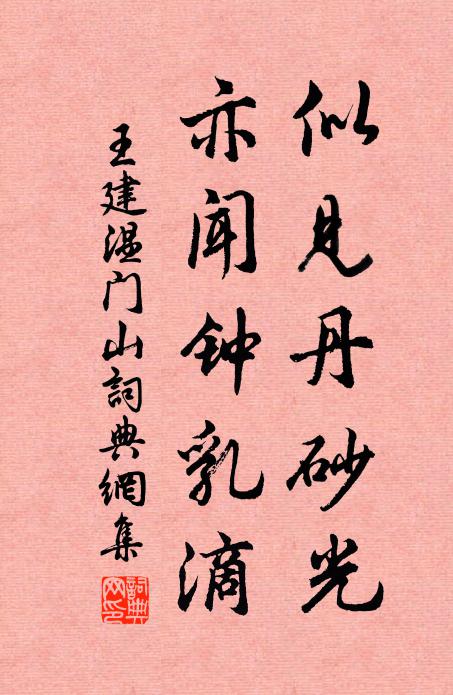 似见丹砂光
亦闻钟乳滴
王建温门山詞典網集
詞典网印